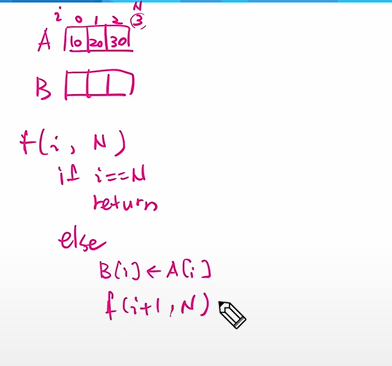 i 0 1 2 N
A 10 20 30 3
B
f(i, N)
if i==N
return
else
B[i]←A[i]
f(i+1, N)